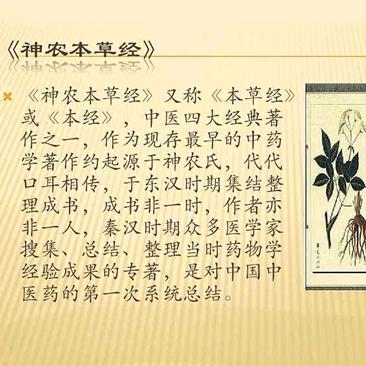 《神农本草经》
《神农本草经》又称《本草经》
或《本经》，中医四大经典著
作之一，作为现存最早的中药
学著作约起源于神农氏，代代
口耳相传，于东汉时期集结整
理成书，成书非一时，作者亦
非一人，秦汉时期众多医学家
搜集、总结、整理当时药物学
经验成果的专著，是对中国中
医药的第一次系统总结。